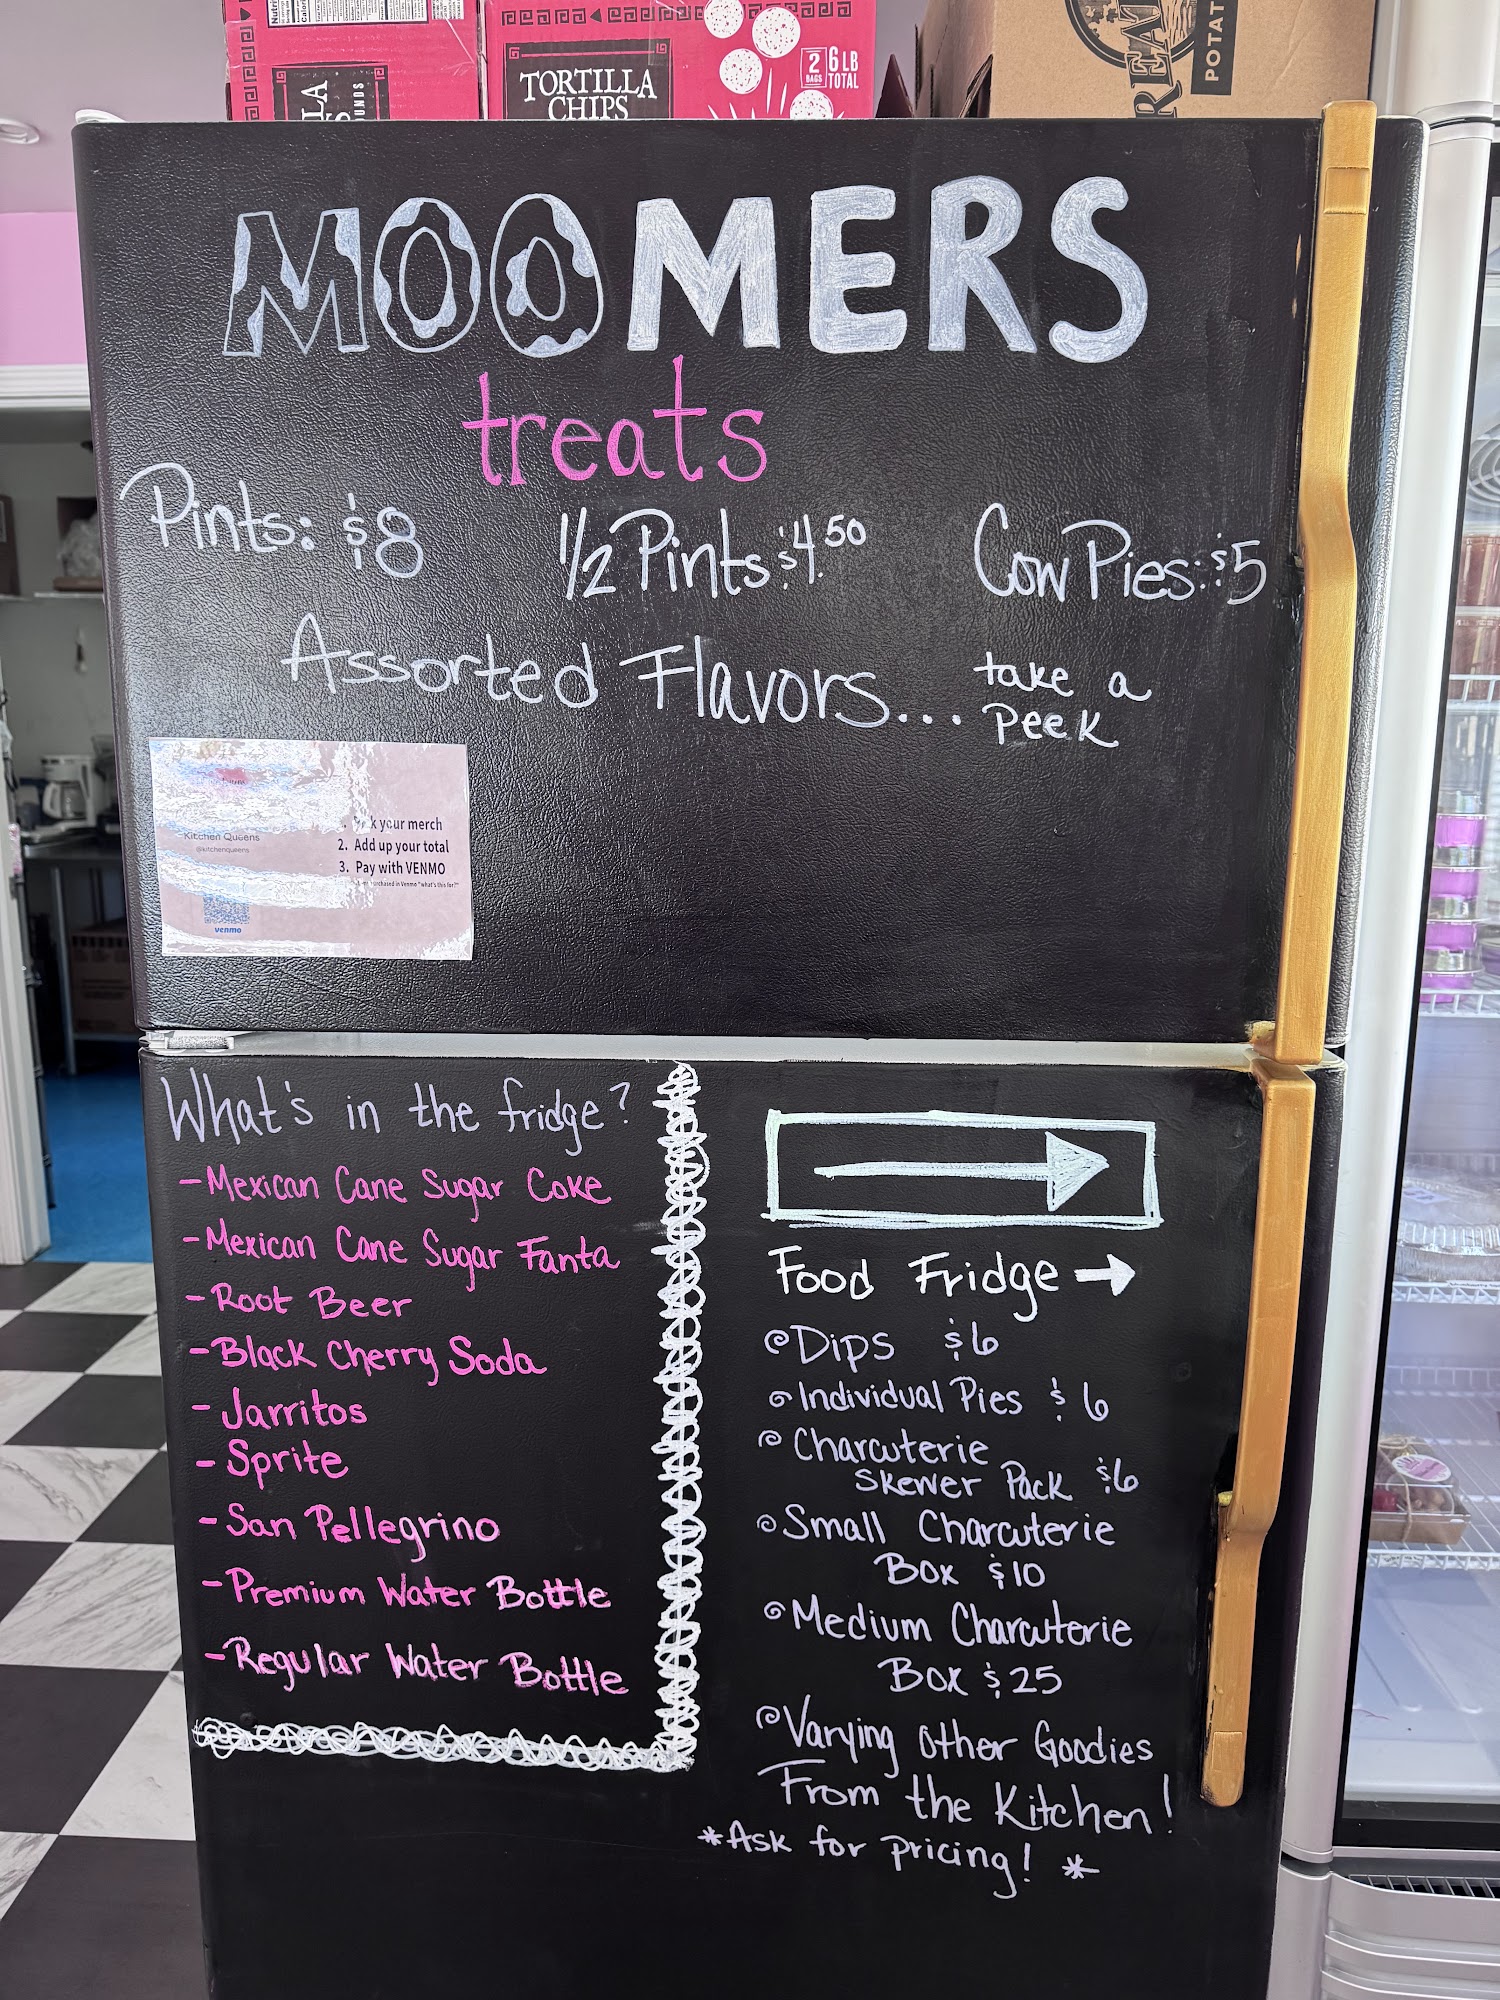 TORTILLA
CHIPS
2
BAGS
6 LB
TOTAL
MOOMERS
treats
Pints: $8
1/2 Pints $4.50
Cow Pies: $5
Assorted Flavors... take a
peek
Kitchen Queens
@kitchenqueens
venmo
your merch
2. Add up your total
3. Pay with VENMO
in Venmo "what's this for?"
What's in the fridge?
- Mexican Cane Sugar Coke
- Mexican Cane Sugar Fanta
- Root Beer
- Black Cherry Soda
- Jarritos
- Sprite
- San Pellegrino
- Premium Water Bottle
- Regular Water Bottle
Food Fridge →
Dips $6
Individual Pies $6
Charcuterie
Skewer Pack $6
Small Charcuterie
Box $10
Medium Charcuterie
Box $25
Varying Other Goodies
From the Kitchen!
*Ask for pricing! *